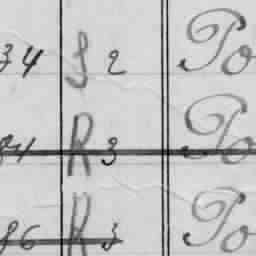 34 S 2 Po
84 R 3 Po
86 R 3 Po